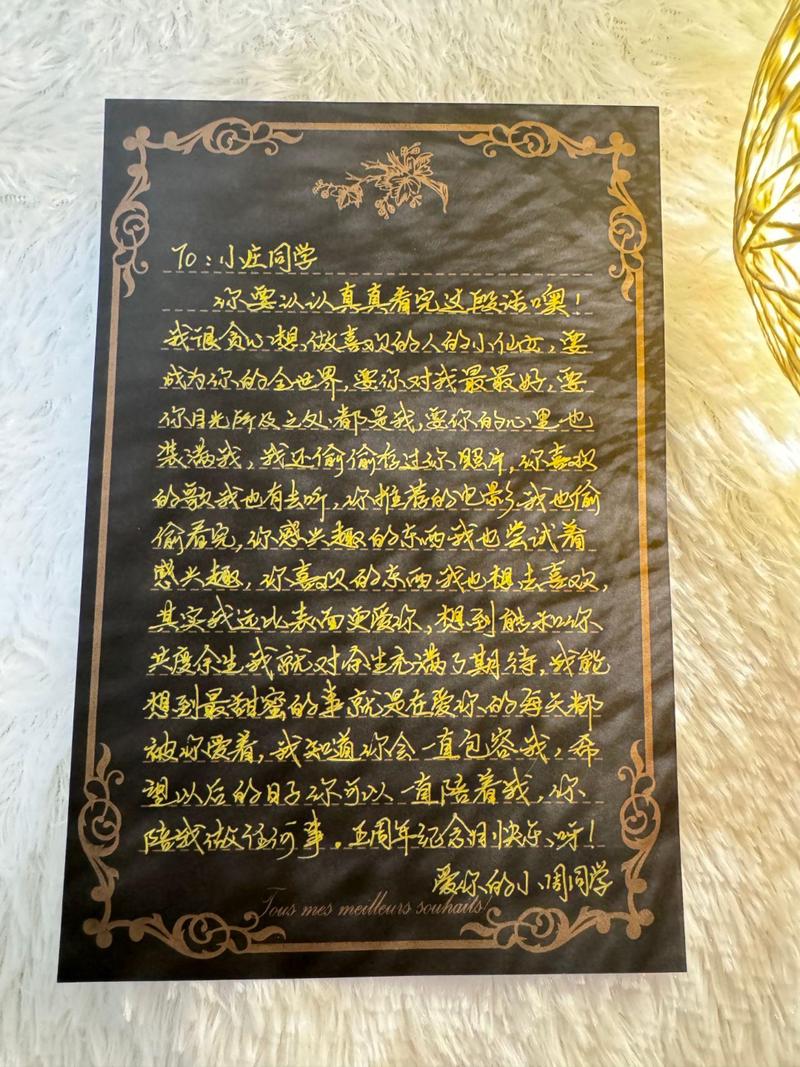 To：小庄同学
你要认认真真看完这段话噢！
我很贪心想做喜欢的人的小仙女，要
成为你的全世界，要你对我最最好，要
你目光所及之处都是我，要你的心里也
装满我，我还偷偷存过你照片，你喜欢
的歌我也有去听，你推荐的电影我也偷
偷看完，你感兴趣的东西我也尝试着
感兴趣，你喜欢的东西我也想去喜欢，
其实我远比表面更爱你，想到能和你
共度余生我就对余生充满了期待，我能
想到最甜蜜的事就是在爱你的每天都
被你爱着，我知道你会一直包容我，希
望以后的日子你可以一直陪着我，你
陪我做任何事。五周年纪念日快乐呀！
爱你的小周同学
Tous mes meilleurs souhaits!